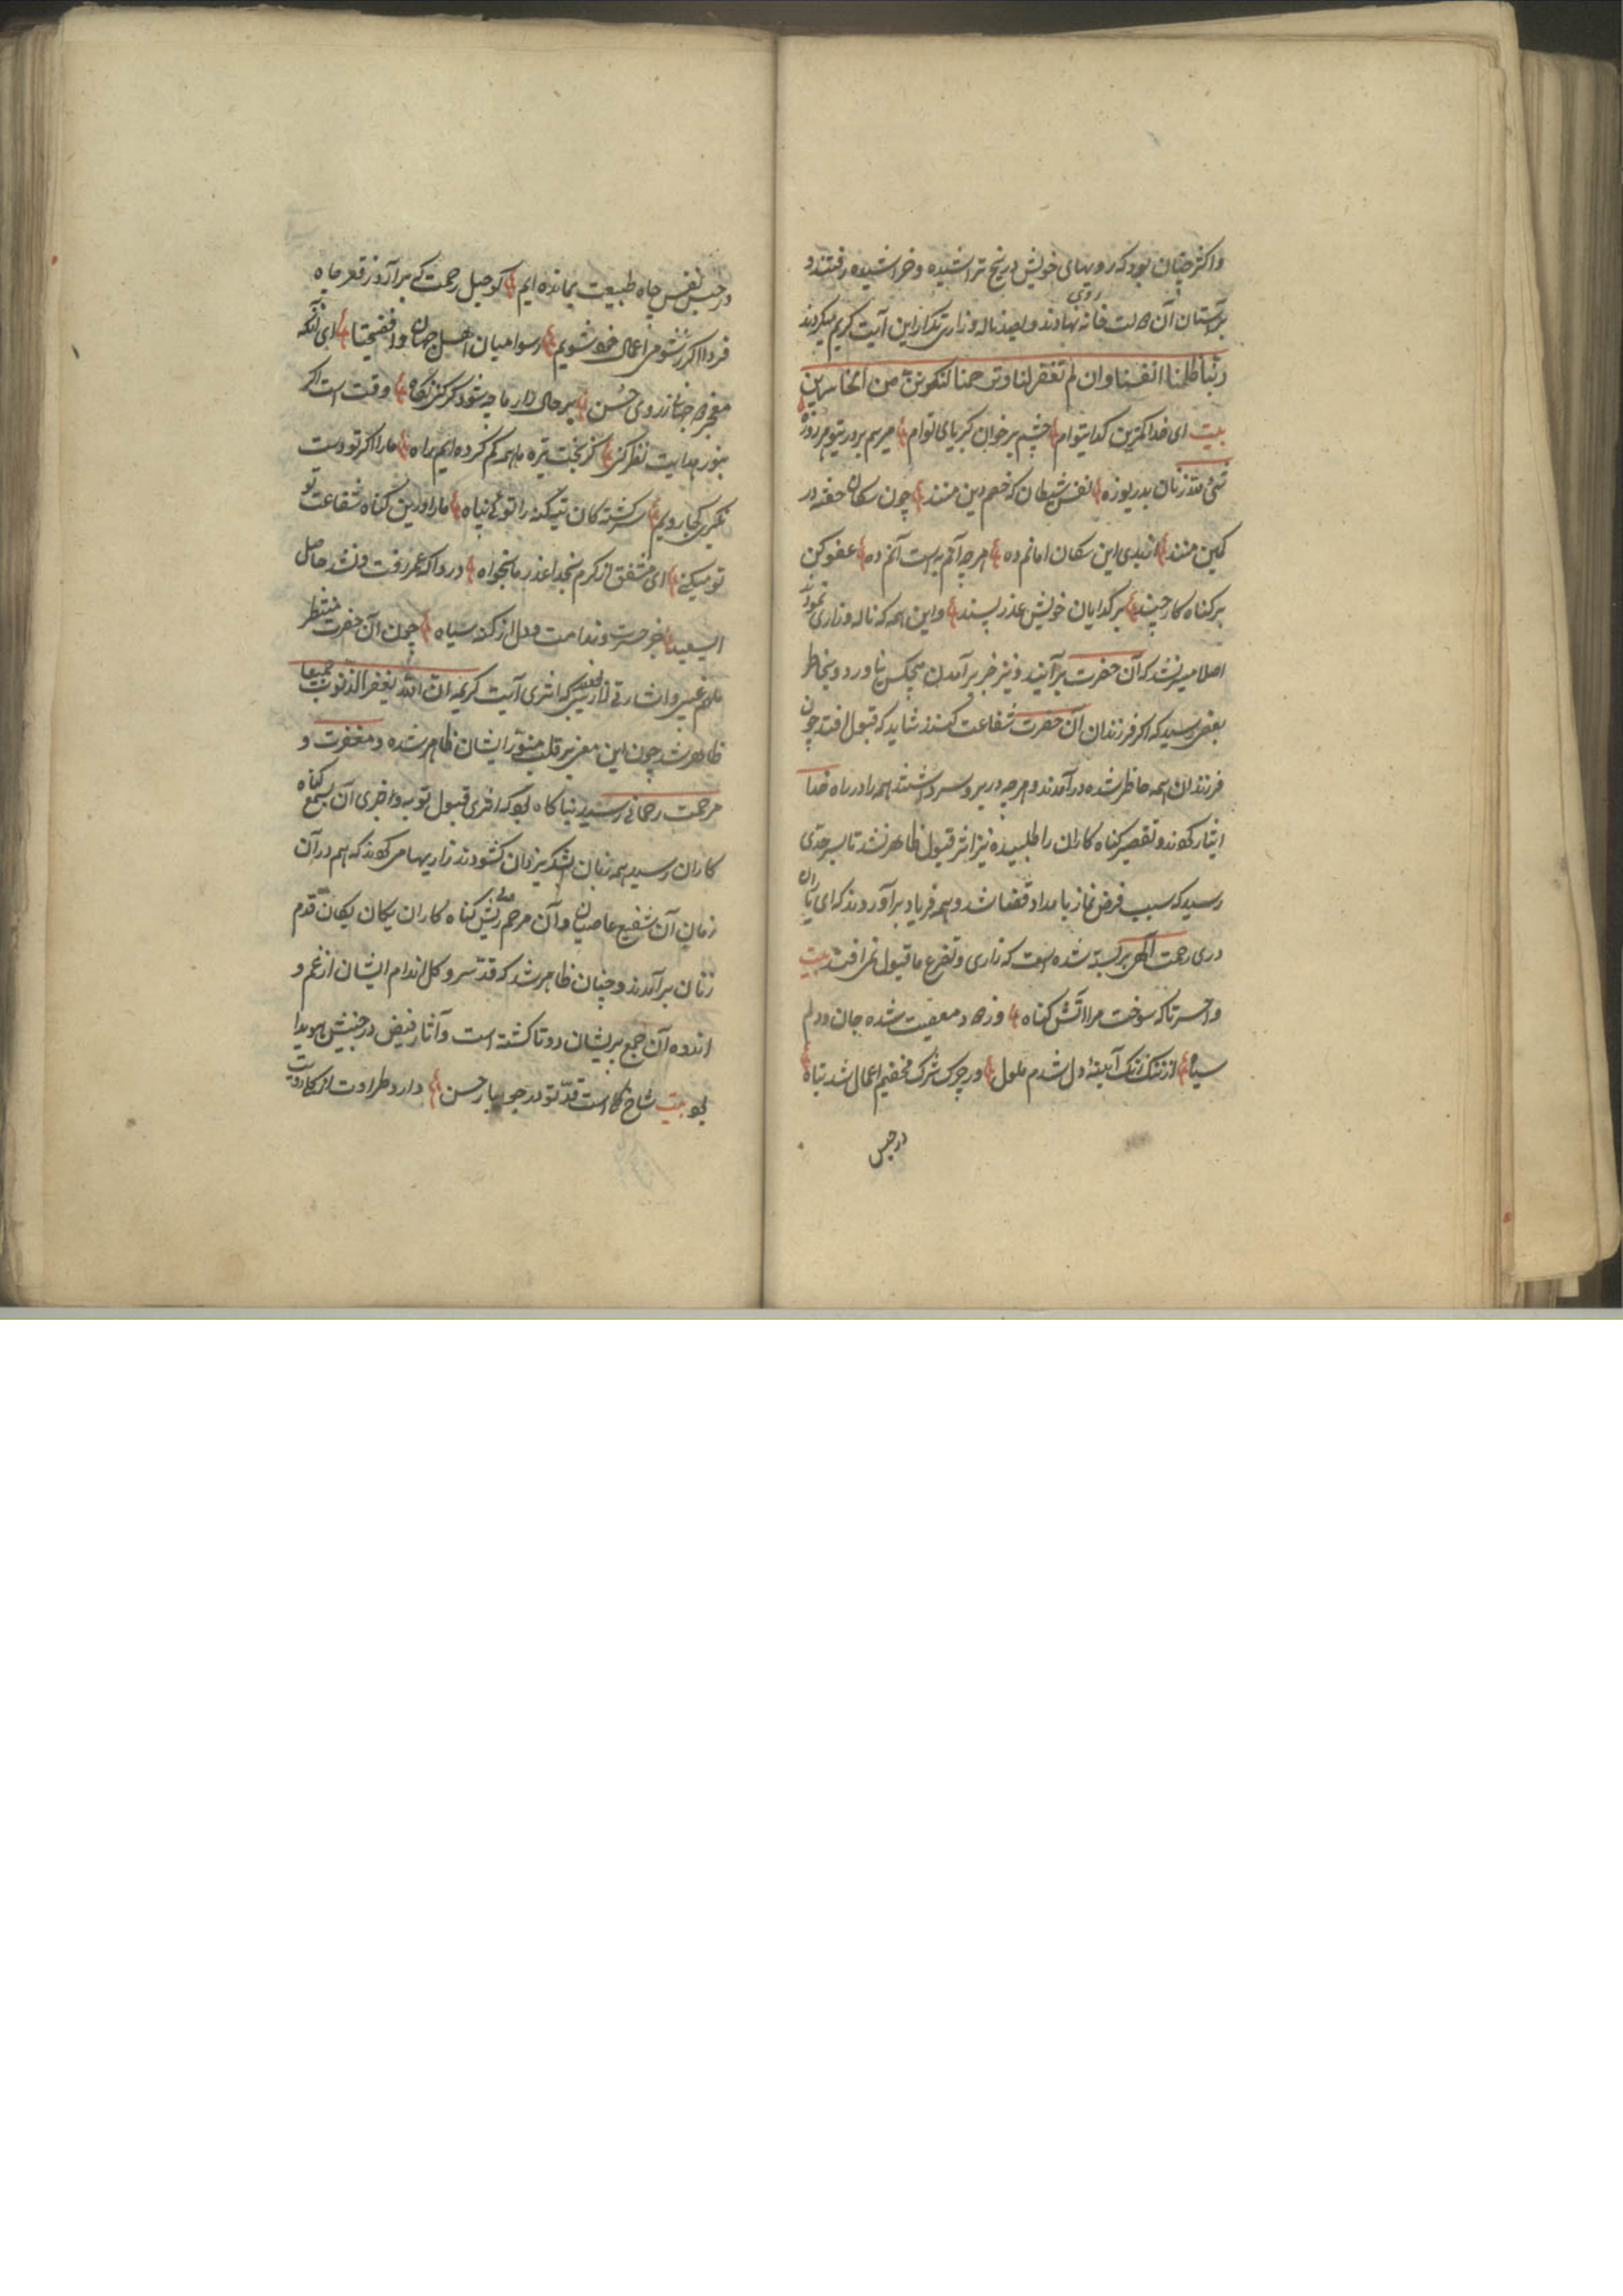 واکثر چنان بود که رویهای خویش در پنج تراشیده و خراشیده رفتند و
بر آستان آن خانه روی نهادند و بصد ناله و زاری تکرار این آیت کریم میکردند
ربنا ظلمنا انفسنا وان لم تغفر لنا وترحمنا لنکونن من الخاسرین
بیت ای خدا کمترین کدایتوام چشم بر خوان کبریای توام میرسم بر در تو هر روزه
شئ لله زنان بدریوزه نفس شیطان که خصم دین منند چون سکان خفته در
کمین منند از بدی این سکان امانم ده هر چه آنم به است آنم ده عفو کن
بر کناه کار چند بر کدایان خویش عذر پسند و این همه که ناله و زاری نمودند
اصلا میسر نشد که آن حضرت بر آیند و نیز خبر بر آمدن هیچکس نیاورد و بخاطر
بعض رسید که اکر فرزندان آن حضرت شفاعت کنند شاید که قبول افتد چون
فرزندان همه حاظر شده در آمدند و هر چه در بر و سر داشتند همه را در راه خدا
ایثار کردند و تقصیر کناه کاران را طلبیده نیز اثر قبول ظاهر نشد تا بسر حدی
رسید که سبب فرض نماز بامداد قضا شد و همه فریاد بر آوردند که ای یاران
دری رحمت الهی بر بسته شده است که زاری و تضرع ما قبول نمی افتد بیت
واحسرتا که سوخت مرا آتش کناه وز دود معصیت شده جان و دلم
سیاه از ننک زنک آیینهٔ دل شدم ملول وز چرک شرک مخفیم اعمال شد تباه
در حبس
در حبس نفس چاه طبیعت بمانده ایم کو حبل رحمت که بر آرد ز قعر چاه
فردا اکر ز شومی اعمال خود شویم رسوا میان اهل جهان وافضیحتا ای آنکه
حسن بر حال زار ما چه شود کر کنی نکاه وقت است اکر
بنور هدایت نظر کنی کز بخت تیره ما همه کم کرده ایم راه ما را اکر تو دست
نکیری کجا رویم سر کشته کان را توئی پناه ما را درین کناه شفاعت تو
تو میکنی ای مشفق از کرم بخدا عذر ما بخواه دردا که عمر رفت و نشد حاصل
جز حسرت و ندامت و دل از کنه سیاه چون آن حضرت منتظر
ملهم غیبی و اشارتی که اثری آیت کریمه ان الله یغفر الذنوب جمیعا
ظاهر شد چون این معنی بر قلب منور ایشان ظاهر شده و مغفرت و
مرحمت رحمانی رسید بناکاه قبول توبه و اجری آن بسمع کناه
کاران رسید همه زبان بشکر یزدان کشودند زاریها می کردند که هم در آن
زمان آن شفیع عاصیان و آن مرحم ریش کناه کاران یکان یکان قدم
زنان بر آمدند و چنان ظاهر شد که قد سرو کل اندام ایشان از غم و
اندوه آن جمع پریشان دوتا کشته است و آثار فیض در جبینش هویدا
بود بیت شاخ کل است قد تو در جویبار حسن دارد طراوت